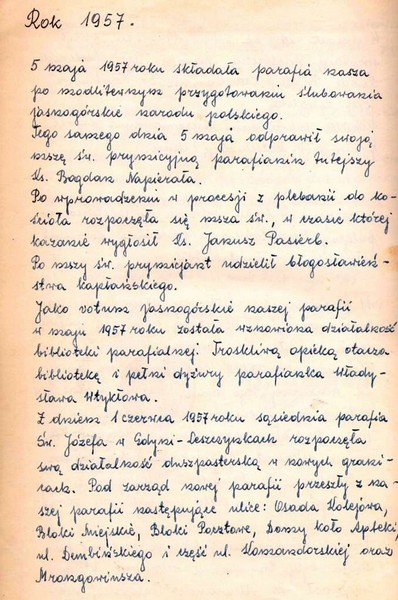 Rok 1957.
5 maja 1957 roku składała parafia nasza
po modlitewnym przygotowaniu ślubowania
jasnogórskie narodu polskiego.
Tego samego dnia 5 maja odprawił swoją
mszę św. prymicyjną parafianin tutejszy
Ks. Bogdan Napierała.
Po wprowadzeniu w procesji z plebanii do ko-
ścioła rozpoczęła się msza św., w czasie której
kazanie wygłosił Ks. Janusz Pasierb.
Po mszy św. prymicjant udzielił błogosławień-
stwa kapłańskiego.
Jako votum jasnogórskie naszej parafii
w maju 1957 roku została wznowiona działalność
biblioteki parafialnej. Troskliwą opieką otacza
bibliotekę i pełni dyżury parafianka Włady-
sława Wtykłowa.
Z dniem 1 czerwca 1957 roku sąsiednia parafia
Św. Józefa w Gdyni-Leszczynkach rozpoczęła
swą działalność duszpasterską w nowych grani-
cach. Pod zarząd nowej parafii przeszły z na-
szej parafii następujące ulice: Osada Kolejowa,
Bloki Miejskie, Bloki Pocztowe, Domy koło Apteki,
ul. Dembińskiego i część ul. Komandorskiej oraz
Mrongowiusza.